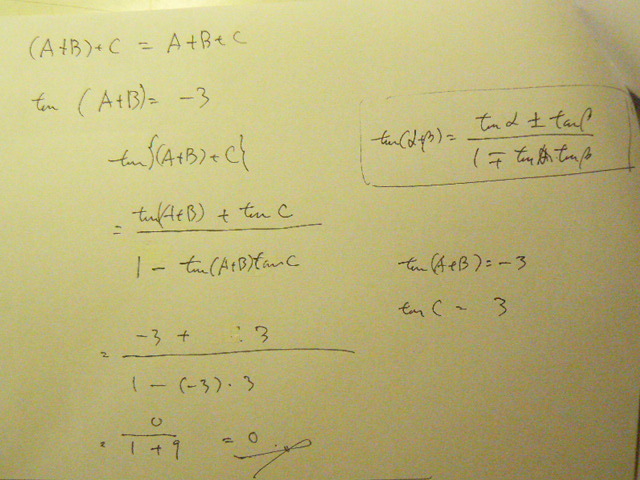 (A+B)+C = A+B+C
tan (A+B) = -3
tan{(A+B)+C}
= \frac{tan(A+B) + tan C}{1 - tan(A+B)tanC}
= \frac{-3 + 3}{1 - (-3)·3}
= \frac{0}{1+9} = 0
tan(α+β) = \frac{tan α ± tan β}{1 ∓ tan α · tan β}
tan(A+B) = -3
tan C = 3